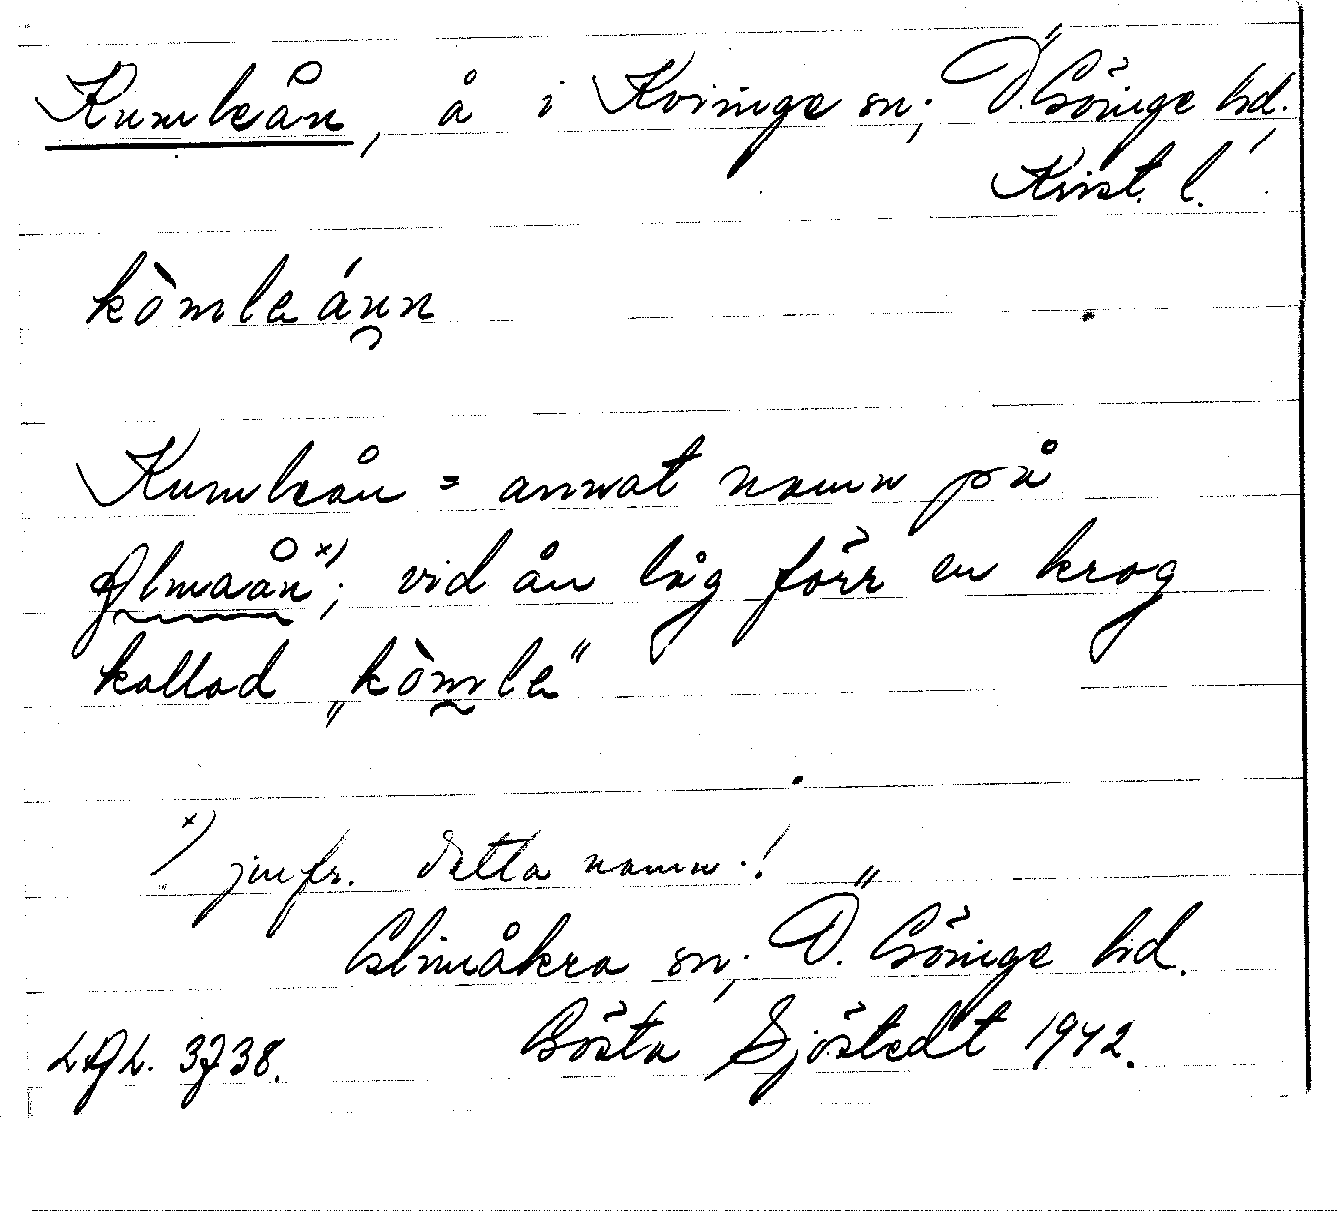 Kumleån, å i Kviinge sn; Ö. Göinge hd.,
Krist. l.
kòmleánn
Kumleån = annat namn på
Almaån x); vid ån låg förr en krog
kallad „kòmle"
x) jmfr. detta namn!
Glimåkra sn; Ö. Göinge hd.
L.A.L. 3738. Gösta Sjöstedt 1942.